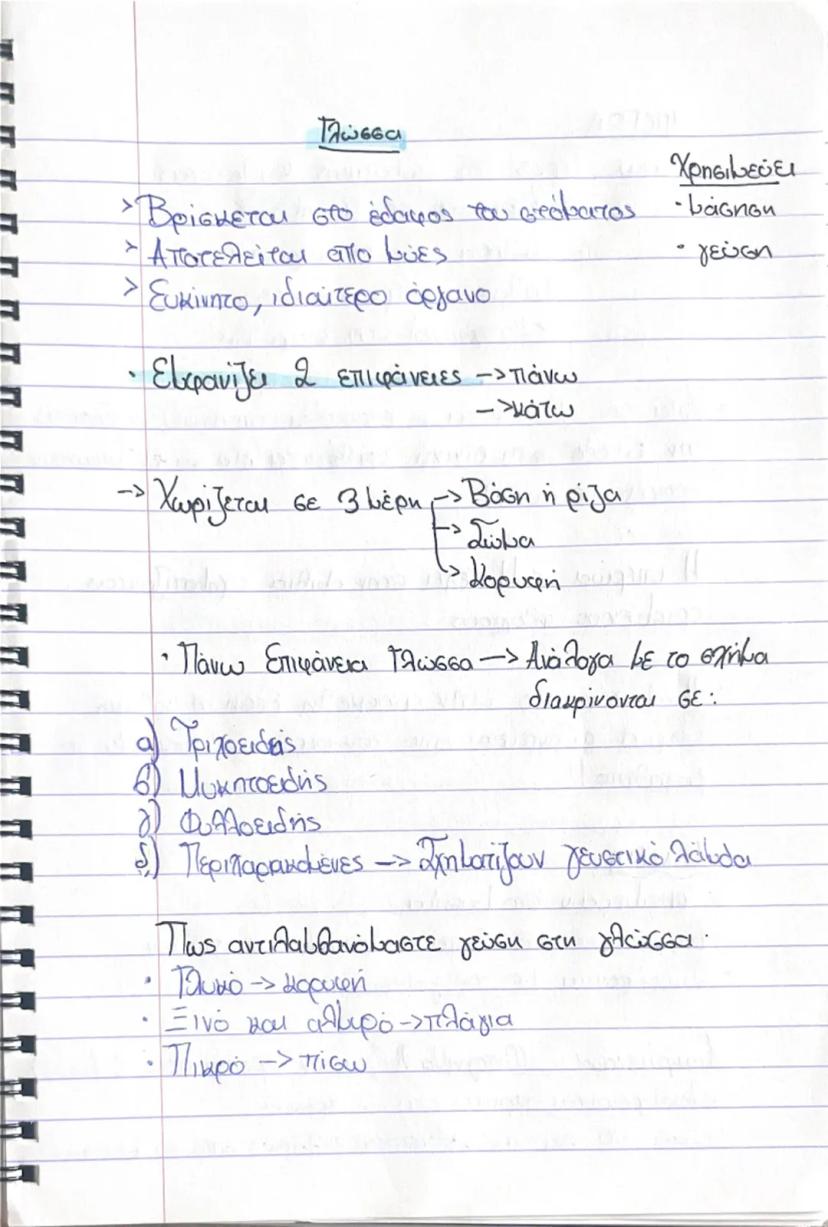 Γλώσσα
Χρησιμεύει
> Βρίσκεται στο έδαφος του στόματος
· μάσηση
> Αποτελείται από μύες
· γεύση
> Ευκίνητο, ιδιαίτερο όργανο
· Εμφανίζει 2 επιφάνειες → πάνω
→ κάτω
→ Χωρίζεται σε 3 μέρη → Βάση ή ρίζα
→ Σώμα
→ Κορυφή
· Πάνω Επιφάνεια Γλώσσα → Ανάλογα με το σχήμα
διακρίνονται σε:
α) Τριχοειδείς
β) Μυκητοειδής
γ) Φυλλοειδής
δ) Περιχαρακωμένες → Σχηματίζουν γευστικό λάμδα
Πως αντιλαμβανόμαστε γεύση στη γλώσσα.
· Γλυκό → κορυφή
· Ξινό και αλμυρό → πλάγια
· Πικρό → πίσω